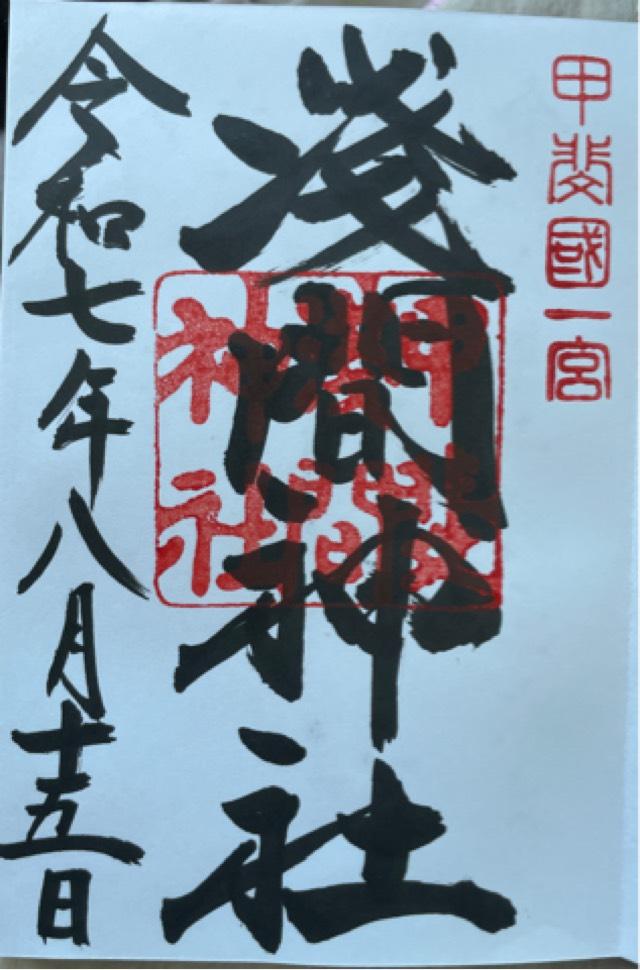 甲斐國一宮
淺間神社
令和七年八月十五日